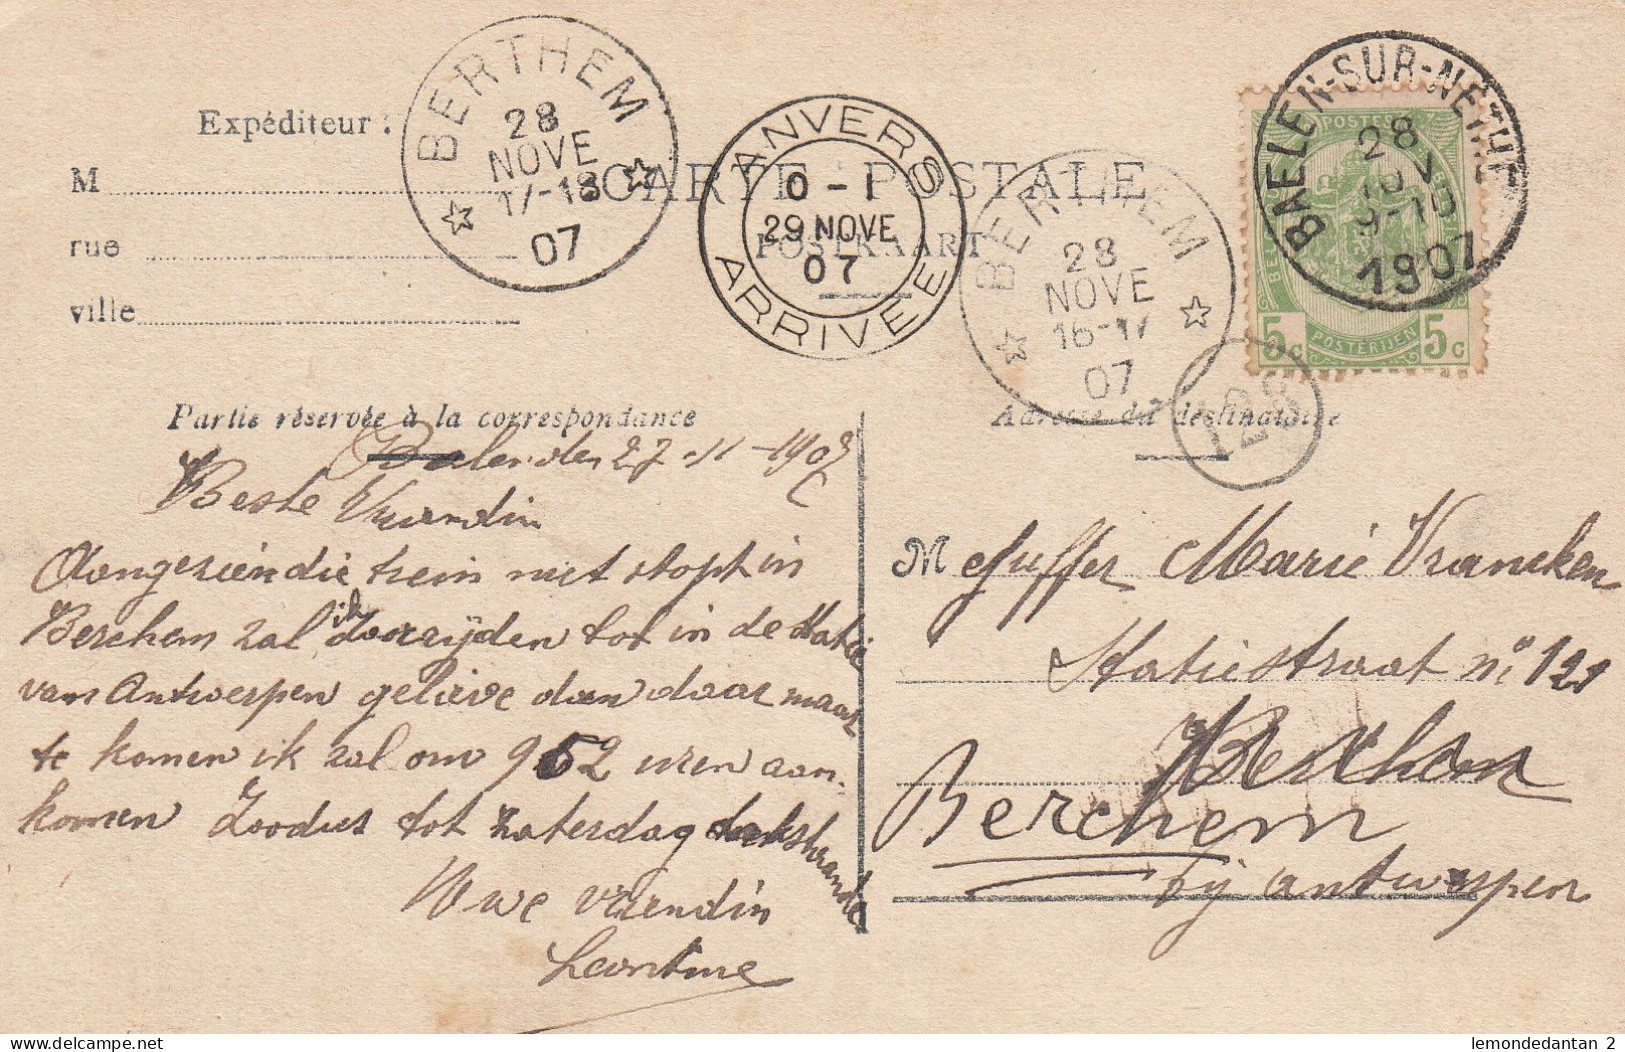 Expéditeur :
M
rue
ville
CARTE POSTALE
POSTKAART
BERTHEM
28
NOVE
17-18
07
ANVERS
0-1
29 NOVE
07
ARRIVEE
BERTHEM
28
NOVE
16-17
07
128
BAELEN-SUR-NETHE
28
9-10
1907
POSTES
5c
POSTERIJEN
5c
Partie réservée à la correspondance
Adresse du destinataire
Balen den 27-11-1907
Beste Vriendin
Aangezien die trein niet stopt in
Berchem zal ik doorrijden tot in de statie
van Antwerpen gelieve dan daar maar
te komen ik zal om 9 52 uren aan-
komen Zoodus tot zaterdag
Uwe vriendin
Leontine
Mejuffer Marie Vrancken
Statiestraat n° 121
Berchem
Berchem
bij antwerpen
lemondedantan 2
delcampe.net